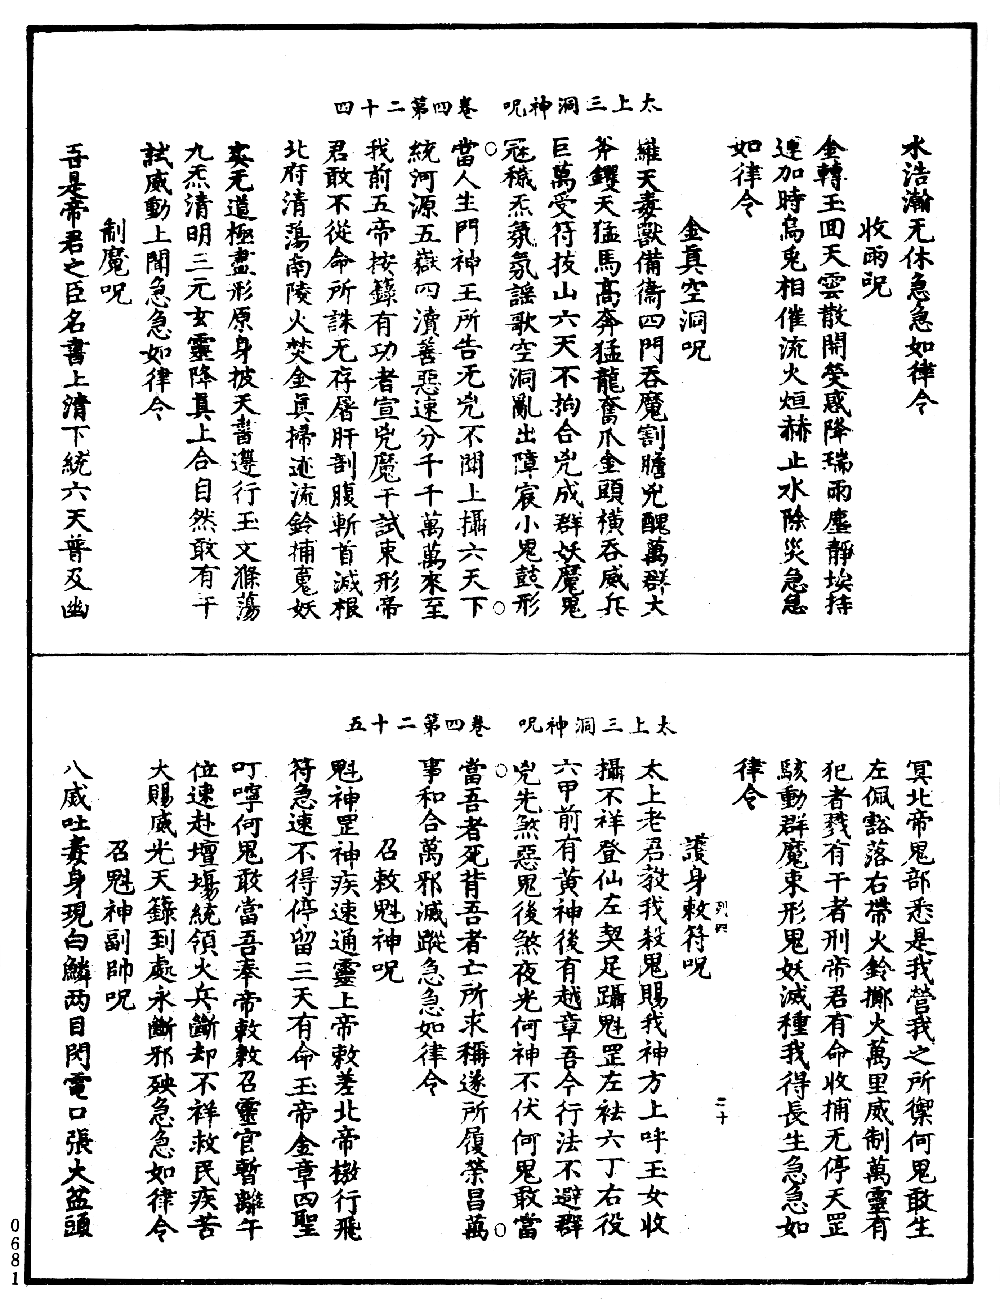 太上三洞神呪　卷四第二十四
水浩瀚无休急急如律令
收雨呪
金轉玉回天雲散開熒惑降瑞雨塵靜埃持
連加時烏兎相催流火烜赫止水除災急急
如律令
金眞空洞呪
羅天毒獸備衛四門吞魔割膽兇醜萬群大
斧鑊天猛馬髙奔猛龍奮爪金頭橫吞威兵
巨萬受符拔山六天不拘合兇成群妖魔鬼
冦穢炁氛氛謡歌空洞亂出障宸小鬼鼓形
當人生門神王所告无兇不聞上攝六天下
統河源五嶽四瀆善惡速分千千萬萬來至
我前五帝按錄有功者宣兇魔干試束形帝
君敢不從命所誅无存屠肝剖腹斬首滅根
北府清蕩南陵火焚金眞掃迹流鈴捕鬼妖
精无道極盡形原身披天書遵行玉文滌蕩
九炁清明三元玄靈降眞上合自然敢有干
試威動上聞急急如律令
制魔呪
吾是帝君之臣名書上清下統六天普及幽
太上三洞神呪　卷四第二十五
冥北帝鬼部悉是我營我之所禦何鬼敢生
左佩豁落右帶火鈴擲火萬里威制萬靈有
犯者戮有干者刑帝君有命收捕无停天罡
駭動群魔束形鬼妖滅種我得長生急急如
律令
列四　二十
護身敕符呪
太上老君敎我殺鬼賜我神方上呼玉女收
攝不祥登仙左契足躡魁罡左袪六丁右役
六甲前有黃神後有越章吾今行法不避群
兇先煞惡鬼後煞夜光何神不伏何鬼敢當
當吾者死背吾者亡所求稱遂所履榮昌萬
事和合萬邪滅蹤急急如律令
召敕魁神呪
魁神罡神疾速通靈上帝敕差北帝檄行飛
符急速不得停留三天有命玉帝金章四聖
叮嚀何鬼敢當吾奉帝敕敕召靈官暫離午
位速赴壇場統領火兵斷却不祥救民疾苦
大賜威光天籙到處永斷邪殃急急如律令
召魁神副帥呪
八威吐毒身現白鱗两目閃電口張大盆頭
0681